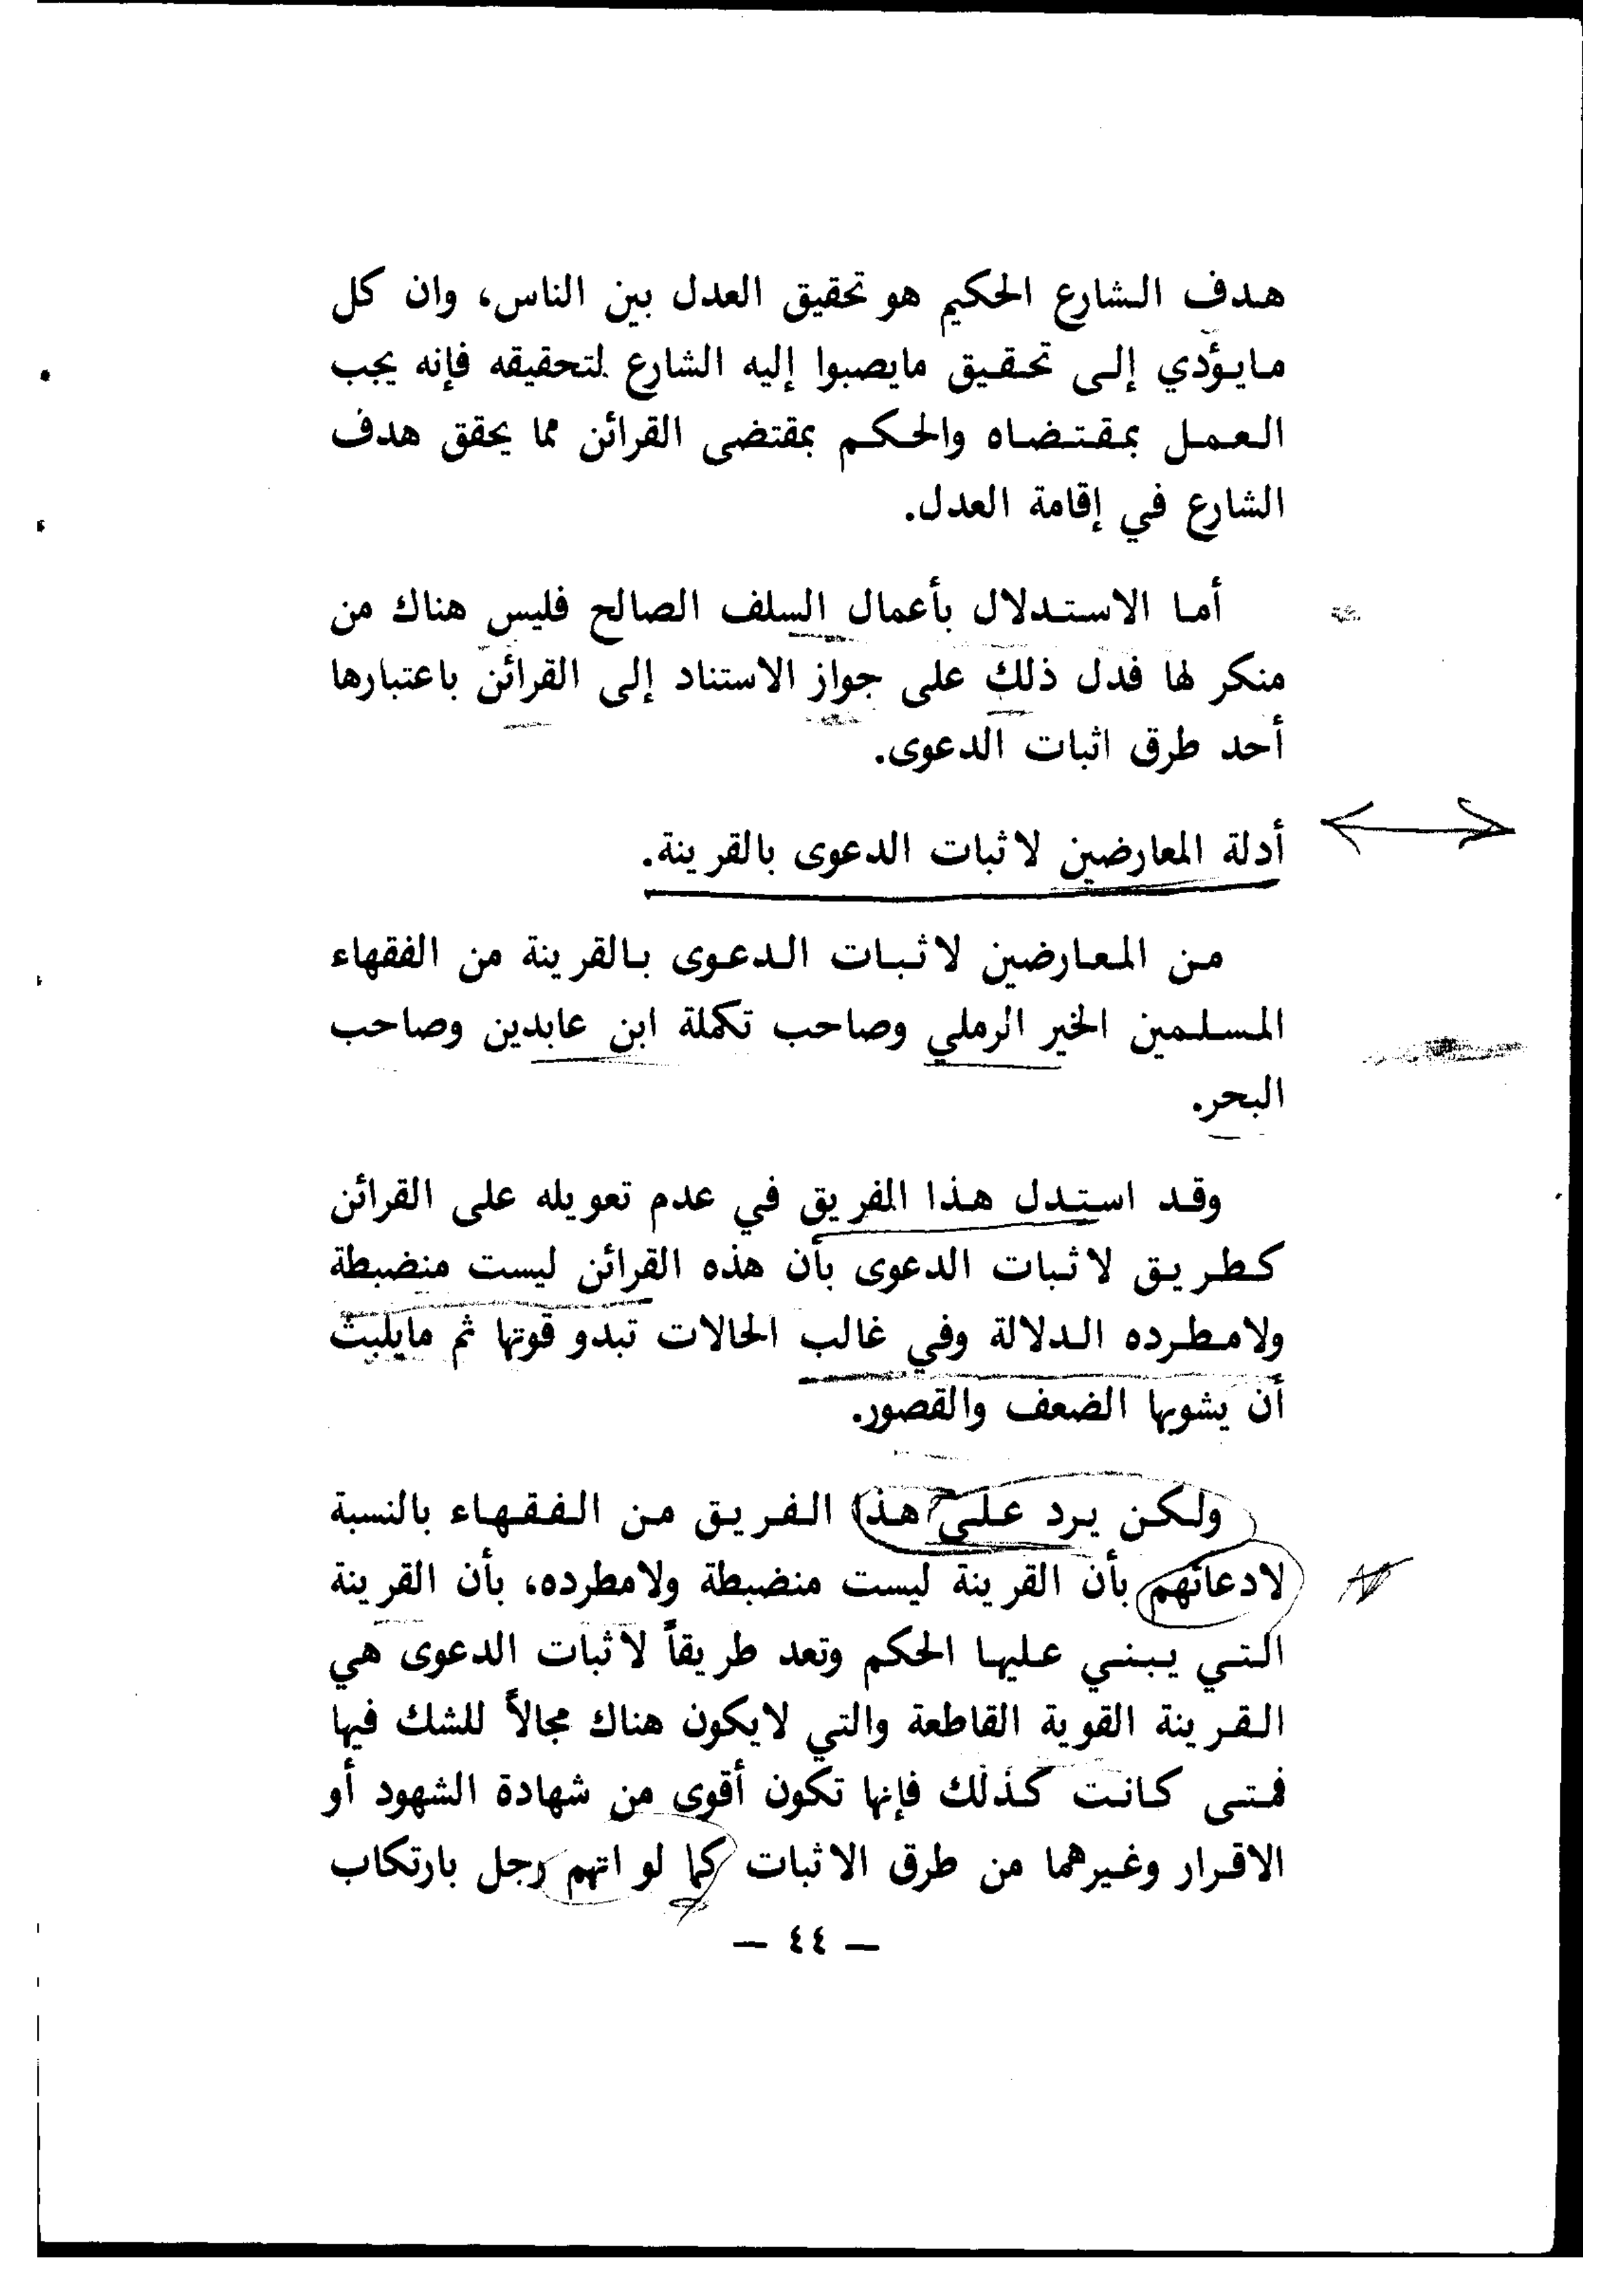 هدف الشارع الحكيم هو تحقيق العدل بين الناس، وان كل
مايؤدي إلى تحقيق مايصبوا إليه الشارع لتحقيقه فإنه يجب
العمل بمقتضاه والحكم بمقتضى القرائن مما يحقق هدف
الشارع في إقامة العدل.
أما الاستدلال بأعمال السلف الصالح فليس هناك من
منكر لها فدل ذلك على جواز الاستناد إلى القرائن باعتبارها
أحد طرق اثبات الدعوى.
أدلة المعارضين لاثبات الدعوى بالقرينة.
من المعارضين لاثبات الدعوى بالقرينة من الفقهاء
المسلمين الخير الرملي وصاحب تكملة ابن عابدين وصاحب
البحر.
وقد استدل هذا الفريق في عدم تعويله على القرائن
كطريق لاثبات الدعوى بأن هذه القرائن ليست منضبطة
ولامطرده الدلالة وفي غالب الحالات تبدو قوتها ثم مايلبث
أن يشوبها الضعف والقصور.
ولكن يرد على هذا الفريق من الفقهاء بالنسبة
لادعائهم بأن القرينة ليست منضبطة ولامطرده، بأن القرينة
التي يبني عليها الحكم وتعد طريقاً لاثبات الدعوى هي
القرينة القوية القاطعة والتي لايكون هناك مجالاً للشك فيها
فمتى كانت كذلك فإنها تكون أقوى من شهادة الشهود أو
الاقرار وغيرهما من طرق الاثبات كما لو اتهم رجل بارتكاب
— ٤٤ —